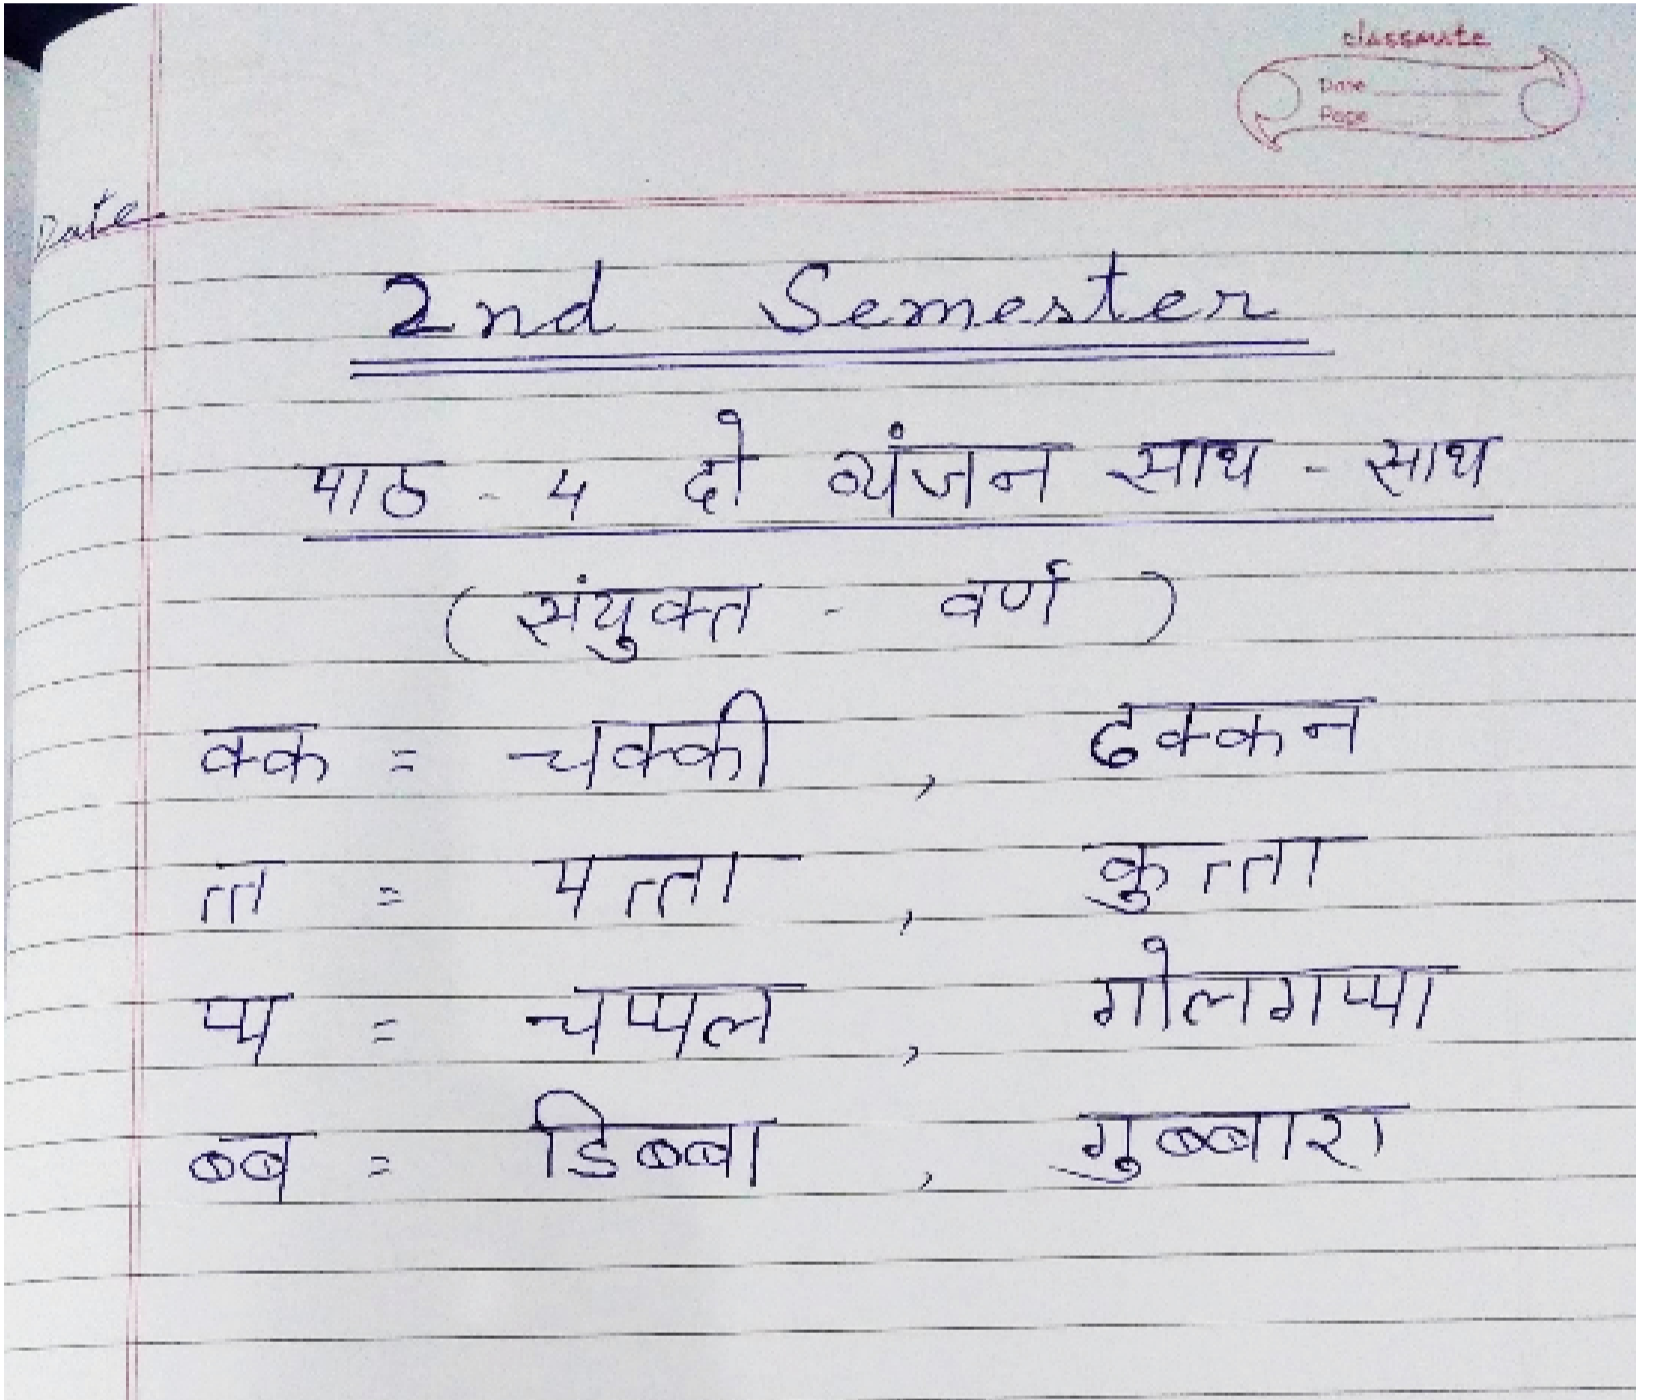 classmate
Date
Page
Date
2nd Semester
पाठ - 4 दो व्यंजन साथ - साथ
( संयुक्त - वर्ण )
क्क = चक्की , ढक्कन
त्त = पत्ता , कुत्ता
प्प = चप्पल , गोलगप्पा
ब्ब = डिब्बा , गुब्बारा